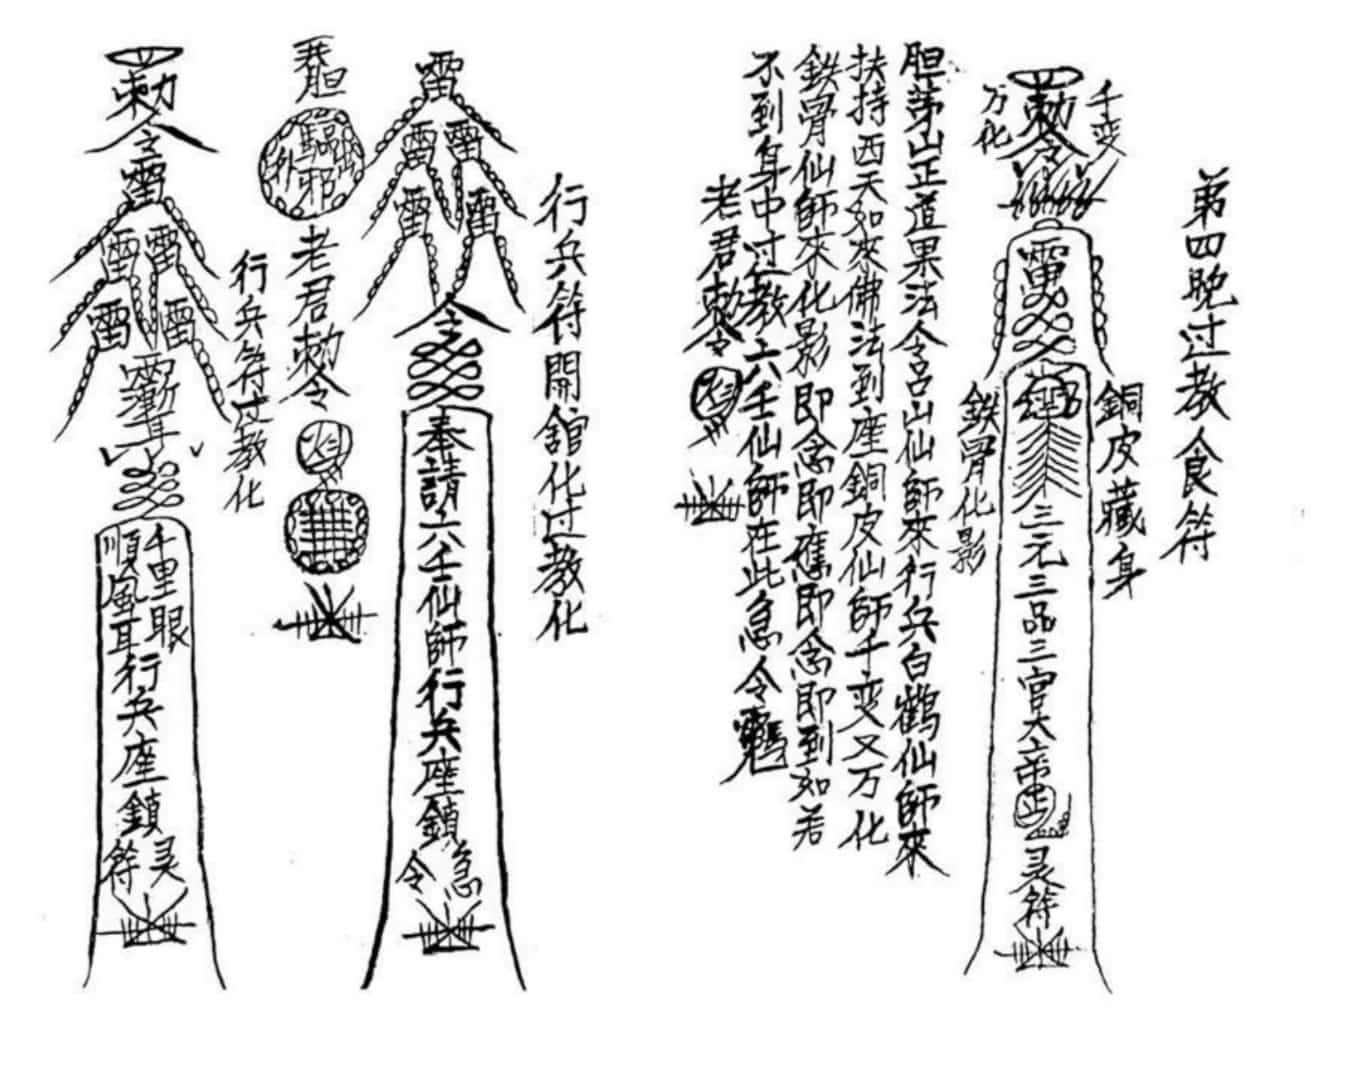 第四晚过教食符
千变
万化
勅令
雷
銅皮藏身
鉄骨化影
三元三品三官大帝
灵符
胆茅山正道果法令呂山仙師來行兵白鶴仙師來
扶持西天如來佛法到座銅皮仙師千变又万化
鉄骨仙師來化影即念即應即念即到如若
不到身中过教六壬仙師在此急令
老君勅令
行兵符開舘化过教化
雷
雷雷
雷雷
令
奉請六壬仙師行兵座鎮
急
令
胆
驅邪
老君勅令
行兵符过教化
勅令
雷
雷雷
雷雷
千里眼
順風耳
行兵座鎮
灵
符